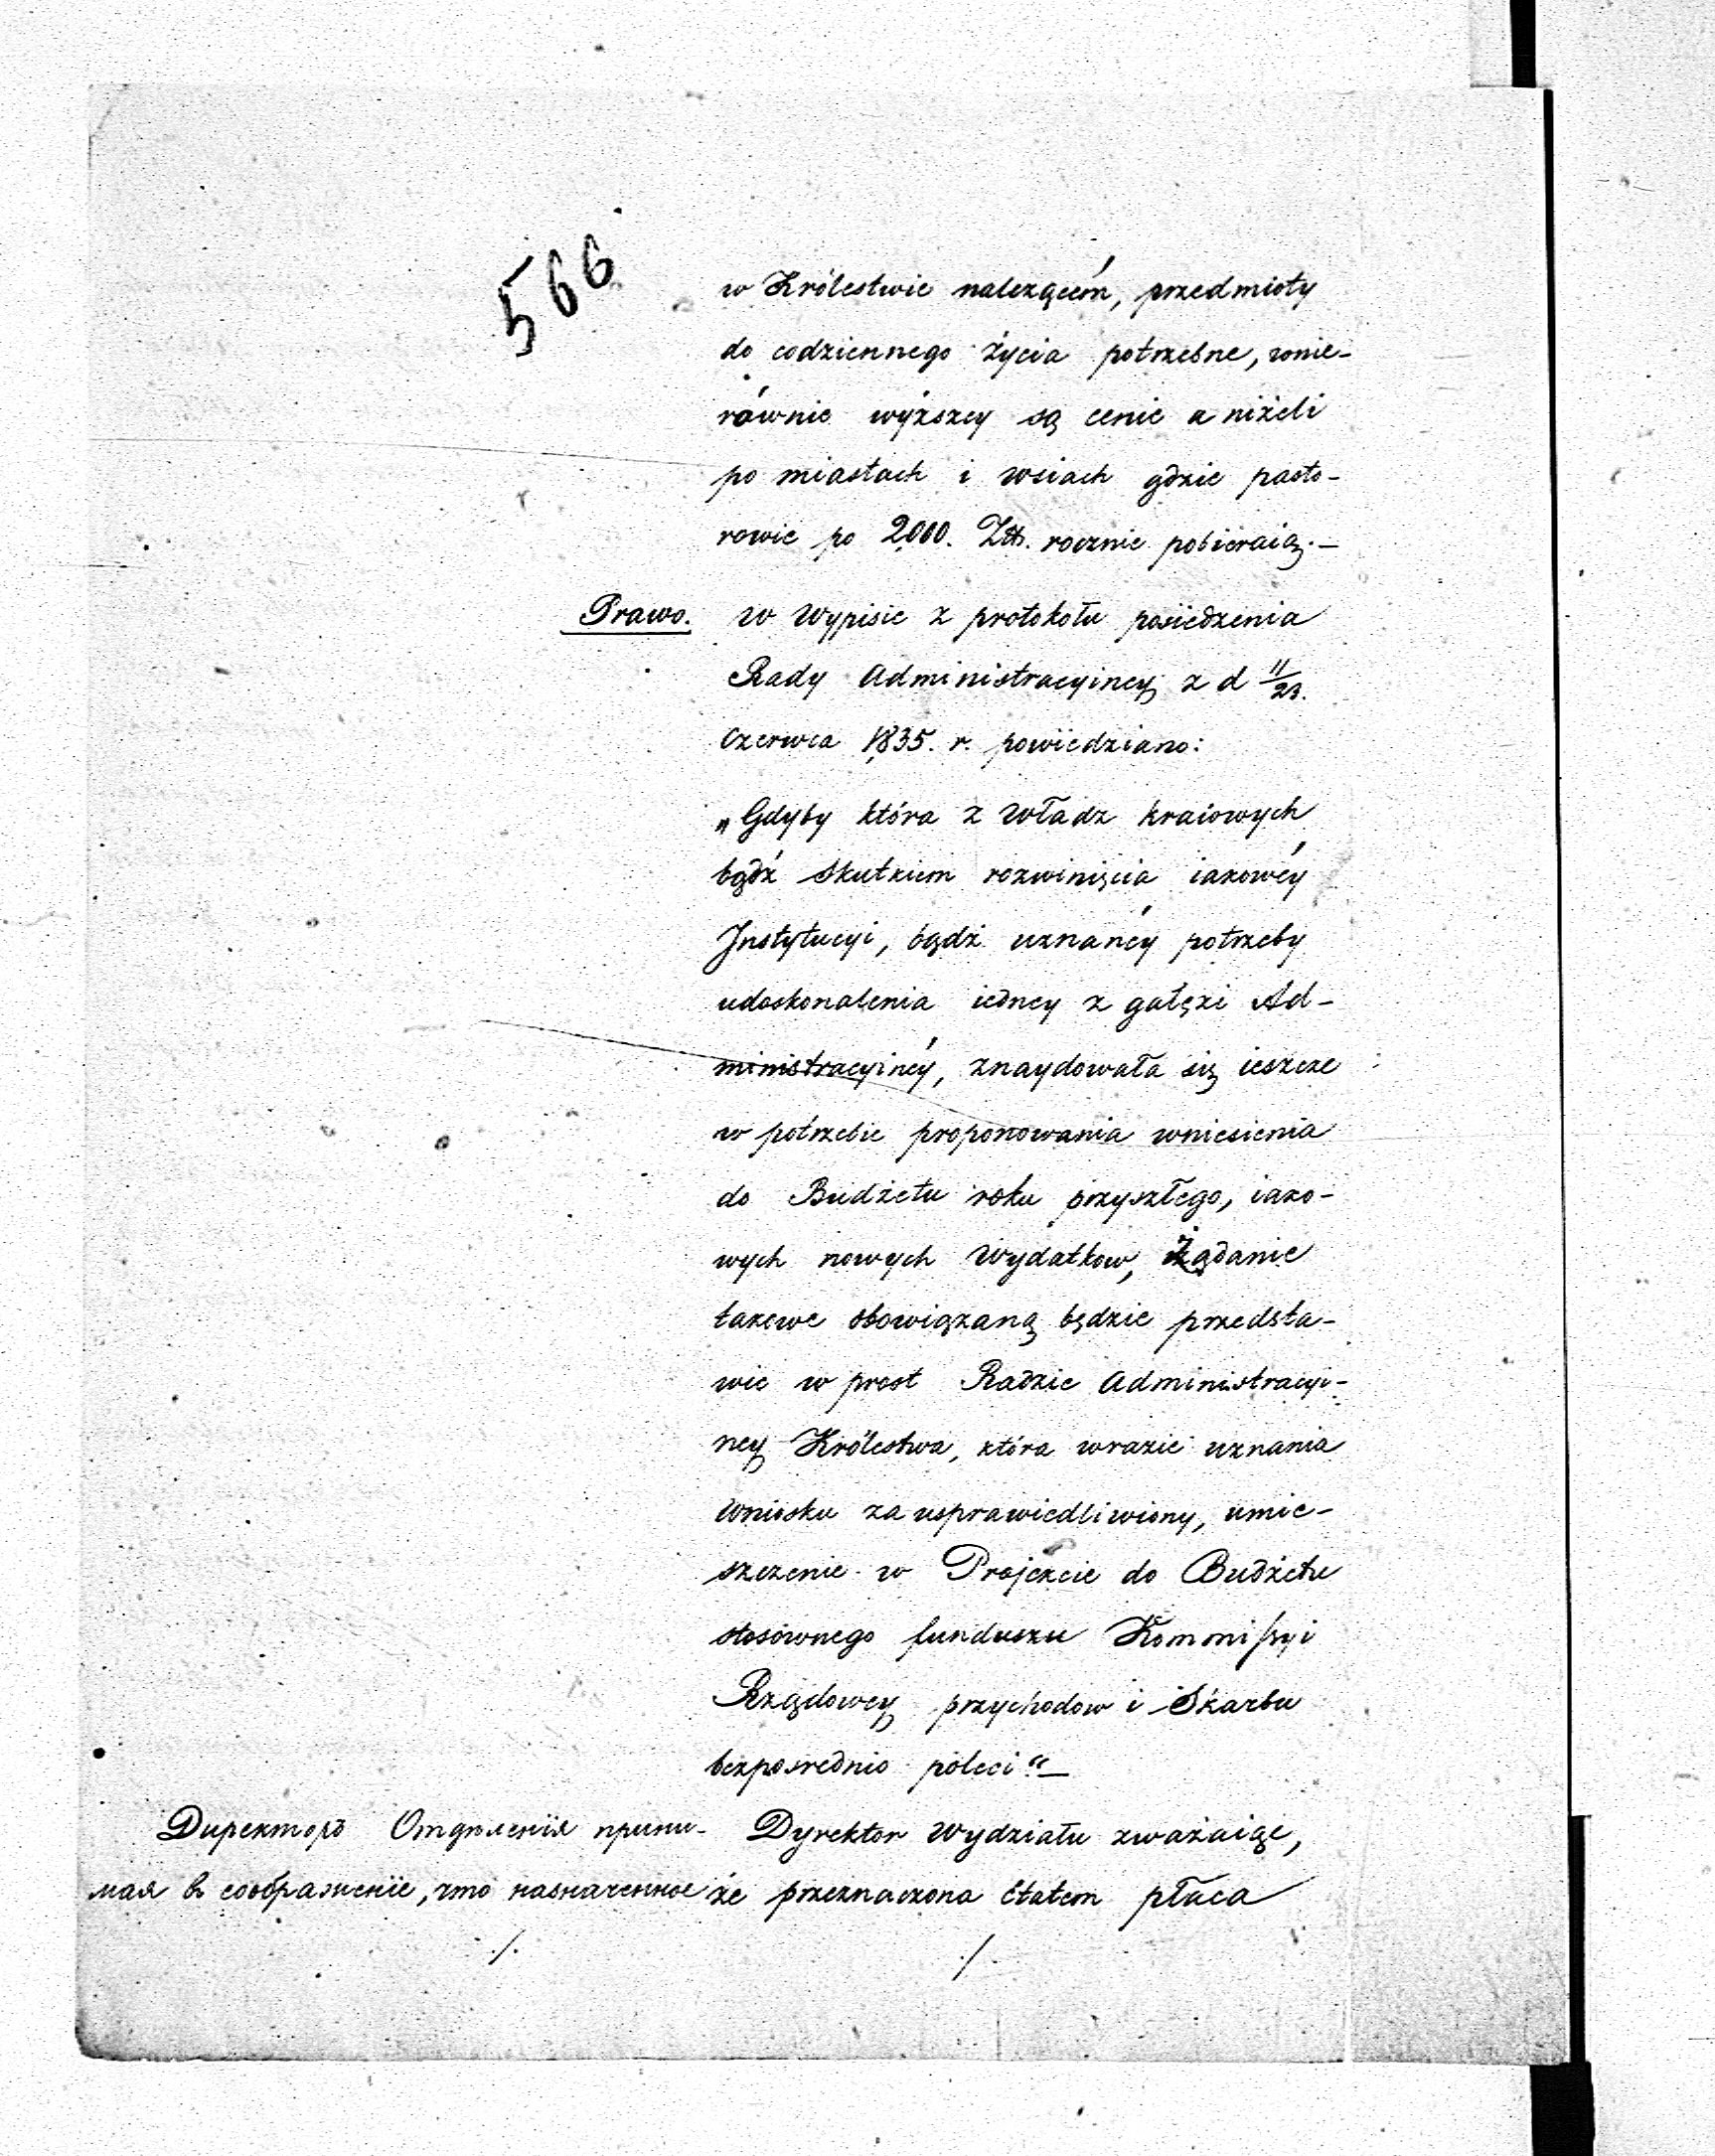 566
w Królestwie nalezącém, przedmioty
do codziennego życia potrzebne, wnie-
równie wyższey są cenie a niżeli
po miastach i wsiach gdzie pasto-
rowie po 2,000. Złh. rocznie pobieraią.—
Prawo. w Wypisie z protokołu posiedzenia
Rady Administracyiney z d 11/23.
Czerwca 1835. r. powiedziano:
„Gdyby która z Władz kraiowych
bądź skutkiem rozwinięcia iakowéy
Instytucyi, bądź uznanéy potrzeby
udoskonalenia iedney z gałęzi Ad-
ministracyinéy, znaydowała się ieszcze
w potrzebie proponowania wniesienia
do Budżetu roku przyszłego, iako-
wych nowych Wydatkow, Żądanie
takowe obowiązaną będzie przedsta-
wic w prost Radzie Administracyi-
ney Królestwa, która wrazie uznania
Wniosku za usprawiedliwiony, umie-
szczenie w Projekcie do Budżetu
stosownego funduszu Kommißyi
Rządowey przychodow i Skarbu
bezposrednio poleci“—
Директоръ Отдѣленія прини- Dyrektor Wydziału zważaiąc,
мая въ соображеніе, что назначенное że przeznaczona Etatem płaca
./. ./.